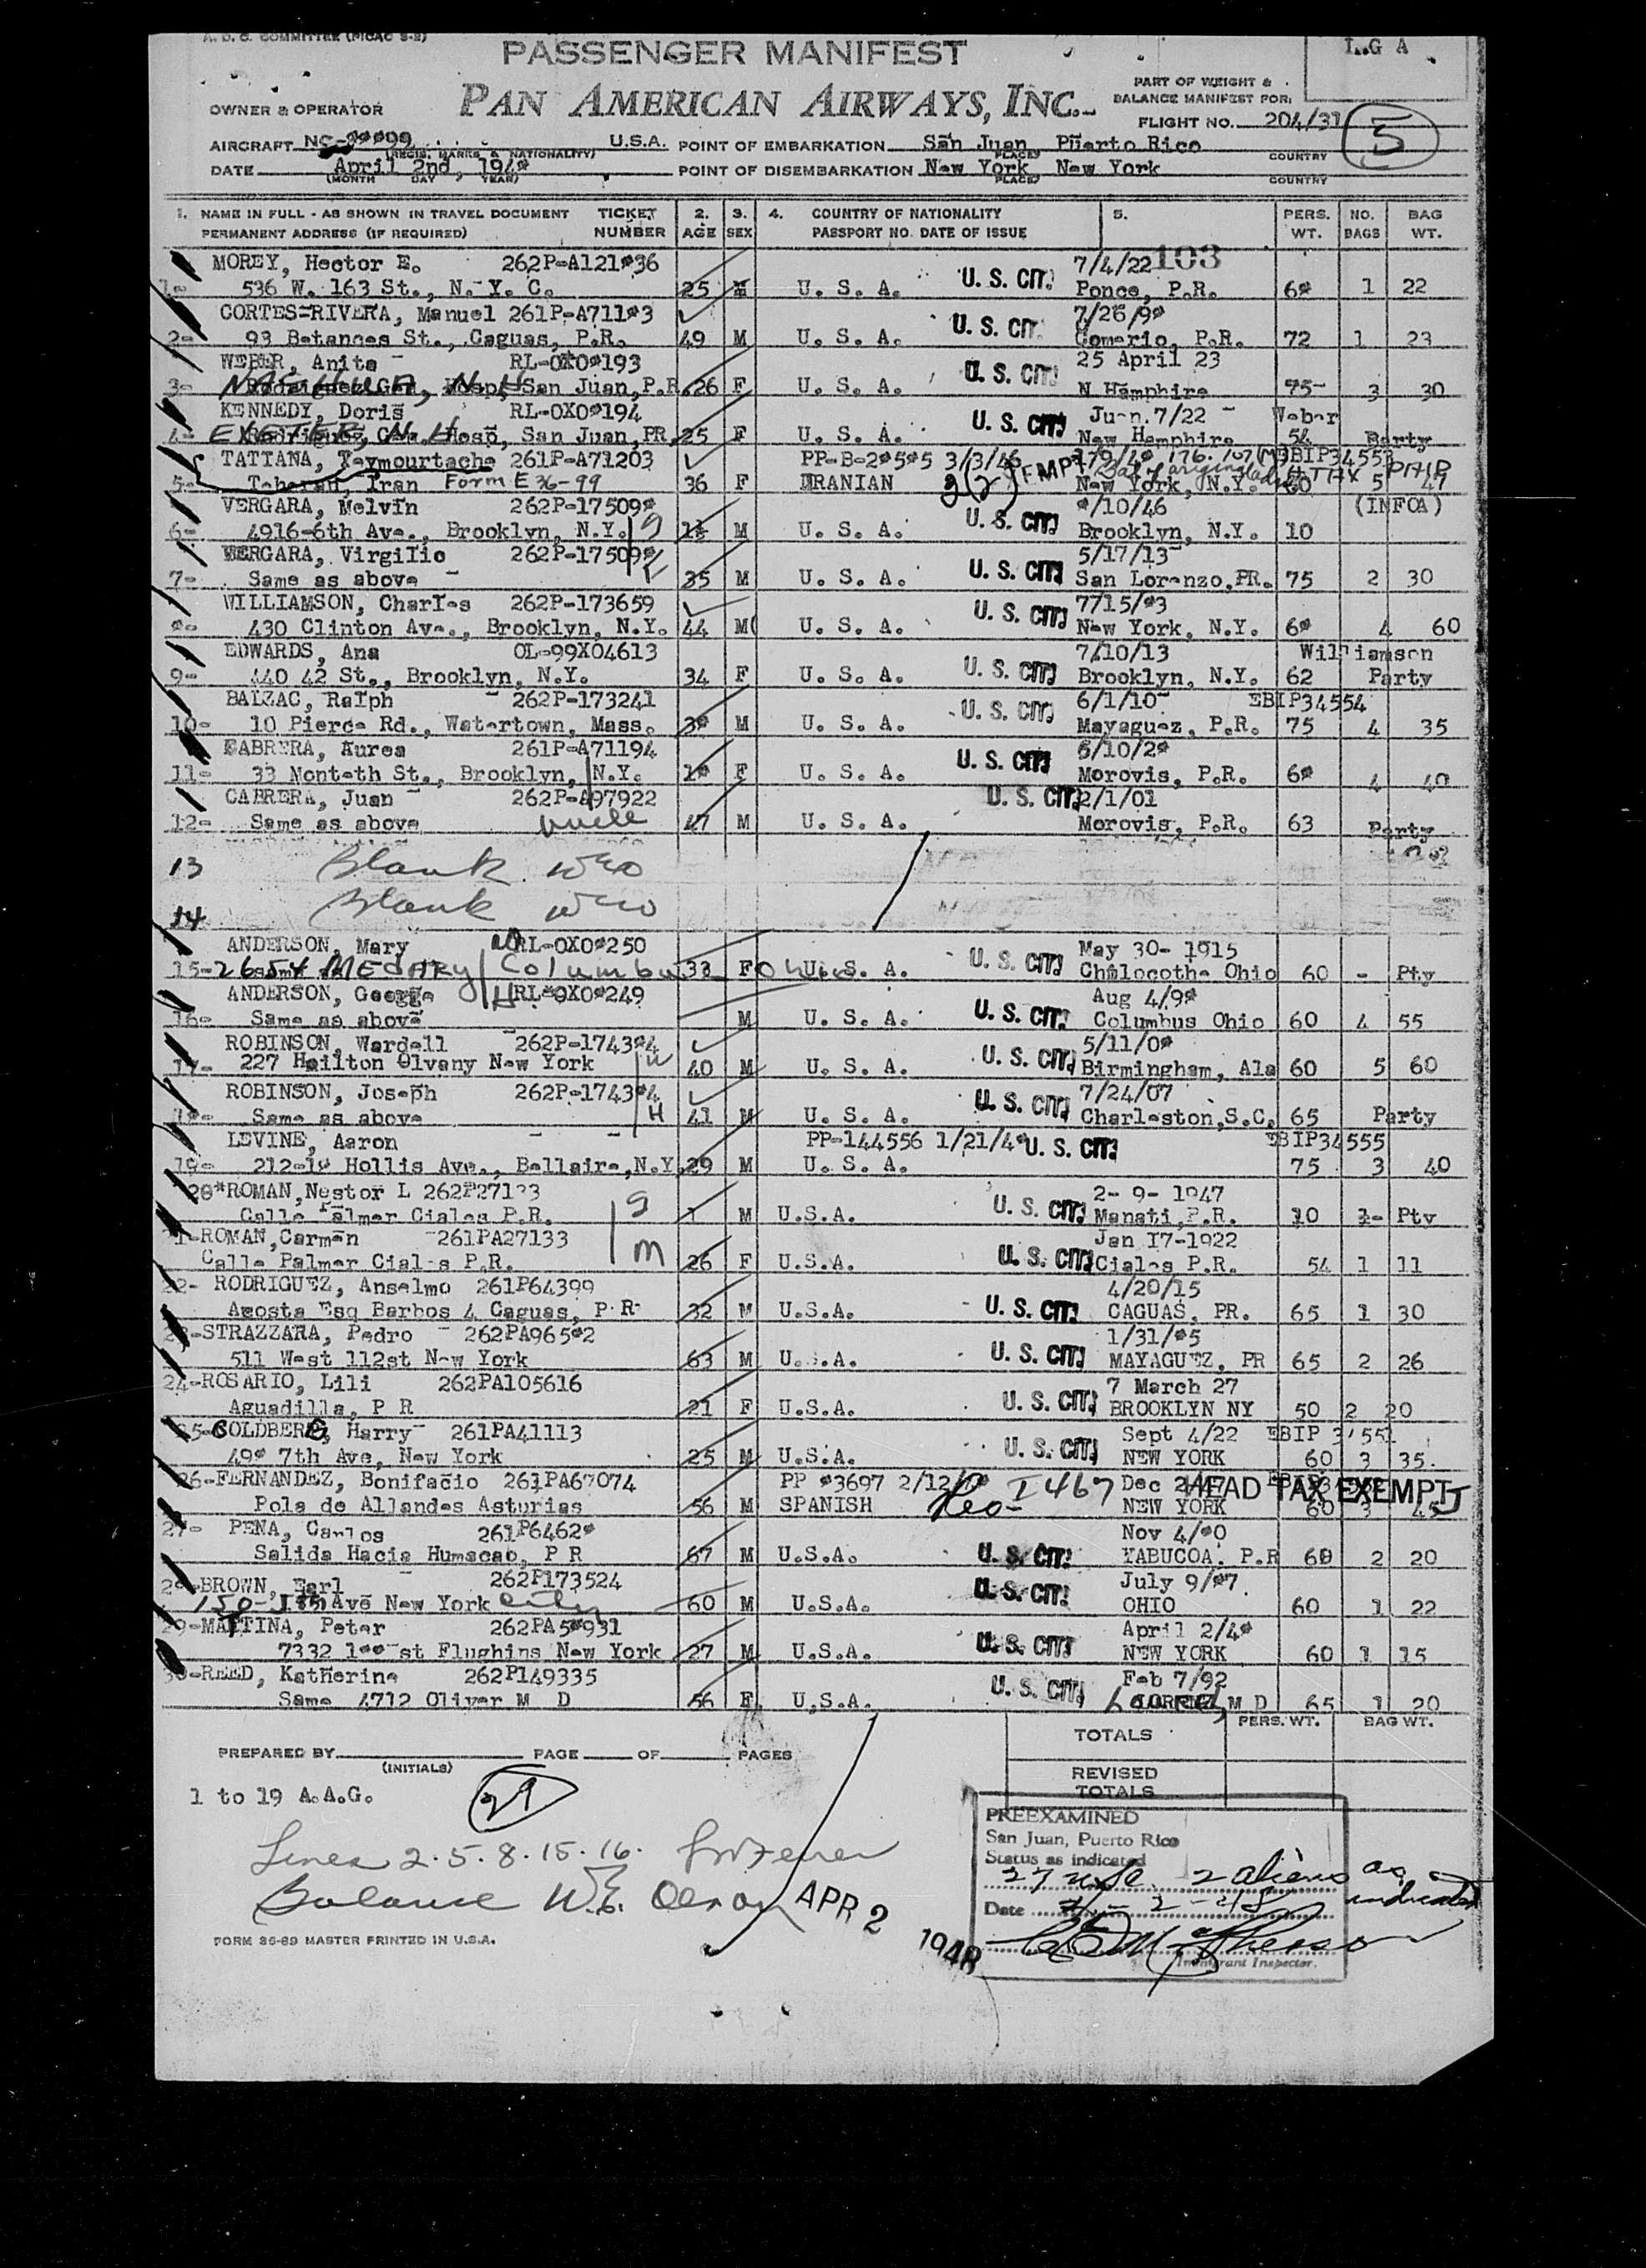 A. D. C. COMMITTEE (MCAC 3-2)
L.G A
PASSENGER MANIFEST
PAN AMERICAN AIRWAYS, INC.
PART OF WEIGHT &
BALANCE MANIFEST FOR:
OWNER & OPERATOR
FLIGHT NO. 204/31
5
AIRCRAFT NC- U.S.A. POINT OF EMBARKATION San Juan, Puerto Rico
(REGIS. MARKS & NATIONALITY) PLACE COUNTRY
DATE April 2nd, 194* POINT OF DISEMBARKATION New York, New York
(MONTH DAY YEAR) PLACE COUNTRY
1. NAME IN FULL - AS SHOWN IN TRAVEL DOCUMENT TICKET 2. 3. 4. COUNTRY OF NATIONALITY 5. PERS. NO. BAG
PERMANENT ADDRESS (IF REQUIRED) NUMBER AGE SEX PASSPORT NO. DATE OF ISSUE WT. BAGS WT.
103
MOREY, Hector E. 262P-A121*36 7/4/22
1- 536 W. 163 St., N. Y. C. 25 M U. S. A. U. S. CIT. Ponce, P.R. 6* 1 22
CORTES-RIVERA, Manuel 261P-A711*3 7/26/9*
2- 93 Betances St., Caguas, P.R. 49 M U. S. A. U. S. CIT. Comerio, P.R. 72 1 23
WEBER, Anita RL-0X0*193 25 April 23
3- NASHUA, N.H. San Juan, P.R. 26 F U. S. A. U. S. CIT. N Hamphire 75- 3 30
KENNEDY, Doris RL-0X0*194 Jun.7/22 Weber
4- EXETER, N.H. Hosp, San Juan, PR. 25 F U. S. A. U. S. CIT. New Hamphire 54 Party
TATTANA, Taymourtache 261P-A71203 PP-B-2*5*5 3/3/46 EBIP34553
5- Teheran, Iran Form E 36-99 36 F IRANIAN New York, N.Y. 60 5 47
VERGARA, Melvin 262P-17509* */10/46 (INFOA)
6- 4916-6th Ave., Brooklyn, N.Y. 1½ M U. S. A. U. S. CIT. Brooklyn, N.Y. 10
VERGARA, Virgilio 262P-17509* 5/17/13
7- Same as above 35 M U. S. A. U. S. CIT. San Lorenzo, PR. 75 2 30
WILLIAMSON, Charles 262P-173659 7/15/*3
*- 430 Clinton Ave., Brooklyn, N.Y. 44 M U. S. A. U. S. CIT. New York, N.Y. 6* 4 60
EDWARDS, Ana OL-99X04613 7/10/13 Williamson
9- 440 42 St., Brooklyn, N.Y. 34 F U. S. A. U. S. CIT. Brooklyn, N.Y. 62 Party
BALZAC, Ralph 262P-173241 6/1/10 EBIP34554
10- 10 Pierce Rd., Watertown, Mass. 3* M U. S. A. U. S. CIT. Mayaguez, P.R. 75 4 35
CABRERA, Aurea 261P-A71194 5/10/2*
11- 33 Monteth St., Brooklyn, N.Y. 1* F U. S. A. U. S. CIT. Morovis, P.R. 6* 4 40
CABRERA, Juan 262P-A97922 2/1/01
12- Same as above uncle 47 M U. S. A. U. S. CIT. Morovis, P.R. 63 Party
13 Blank
14 Blank
ANDERSON, Mary RL-0X0*250 May 30- 1915
15- 2654 MEDARY Columbus Ohio 33 F U. S. A. U. S. CIT. Chilocothe Ohio 60 - Pty
ANDERSON, George RL-0X0*249 Aug 4/9*
16- Same as above M U. S. A. U. S. CIT. Columbus Ohio 60 4 55
ROBINSON, Wardell 262P-1743*4 5/11/0*
17- 227 Hailton Olvany New York 40 M U. S. A. U. S. CIT. Birmingham, Ala 60 5 60
ROBINSON, Joseph 262P-1743*4 7/24/07
1*- Same as above 41 M U. S. A. U. S. CIT. Charleston, S.C. 65 Party
LEVINE, Aaron PP-144556 1/21/4* U. S. CIT. EBIP34555
19- 212-1* Hollis Ave., Bellaire, N.Y. 29 M U. S. A. 75 3 40
20*ROMAN, Nestor L 262P27133 2- 9- 1947
Calle Palmer Ciales P.R. 1 M U.S.A. U. S. CIT. Manati, P.R. 10 1- Pty
21-ROMAN, Carmen 261PA27133 Jan 17-1922
Calle Palmer Ciales P.R. 26 F U.S.A. U. S. CIT. Ciales P.R. 54 1 11
22- RODRIGUEZ, Anselmo 261P64399 4/20/15
Acosta Esq Barbos 4 Caguas, P.R 32 M U.S.A. U. S. CIT. CAGUAS, PR. 65 1 30
23-STRAZZARA, Pedro 262PA965*2 1/31/*5
511 West 112st New York 63 M U.S.A. U. S. CIT. MAYAGUEZ, PR 65 2 26
24-ROSARIO, Lili 262PA105616 7 March 27
Aguadilla, P R 21 F U.S.A. U. S. CIT. BROOKLYN NY 50 2 20
25-GOLDBERG, Harry 261PA41113 Sept 4/22 EBIP
49* 7th Ave, New York 25 M U.S.A. U. S. CIT. NEW YORK 60 3 35
26-FERNANDEZ, Bonifacio 261PA67074 PP *3697 2/12/ I467 Dec HEAD TAX EXEMPT
Pola de Allandes Asturias 56 M SPANISH NEW YORK 60 3 45
27- PENA, Carlos 261P6462* Nov 4/*0
Salida Hacia Humacao, P R 67 M U.S.A. U. S. CIT. YABUCOA. P.R 60 2 20
2*-BROWN, Earl 262P173524 July 9/*7
150- Ave New York City 60 M U.S.A. U. S. CIT. OHIO 60 1 22
29-MATTINA, Peter 262PA5*931 April 2/4*
7332 1**st Flughins New York 27 M U.S.A. U. S. CIT. NEW YORK 60 1 15
30-REED, Katherine 262P149335 Feb 7/92
Same 4712 Oliver M D 56 F U.S.A. U. S. CIT. M D 65 1 20
TOTALS PERS. WT. BAG WT.
PREPARED BY PAGE OF PAGES
(INITIALS)
REVISED
TOTALS
1 to 19 A.A.G.
29
PREEXAMINED
San Juan, Puerto Rico
Status as indicated
27 USC 2 aliens as indicated
Date 4-2-48
Immigrant Inspector.
Lines 2. 5. 8. 15. 16.
Balance W.E.
APR 2 1948
FORM 35-69 MASTER PRINTED IN U.S.A.